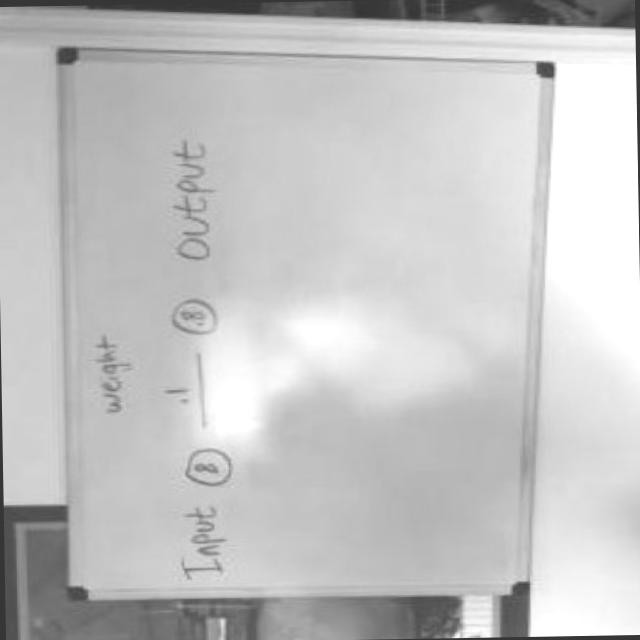 weight
.1
Input 8 — .8 Output